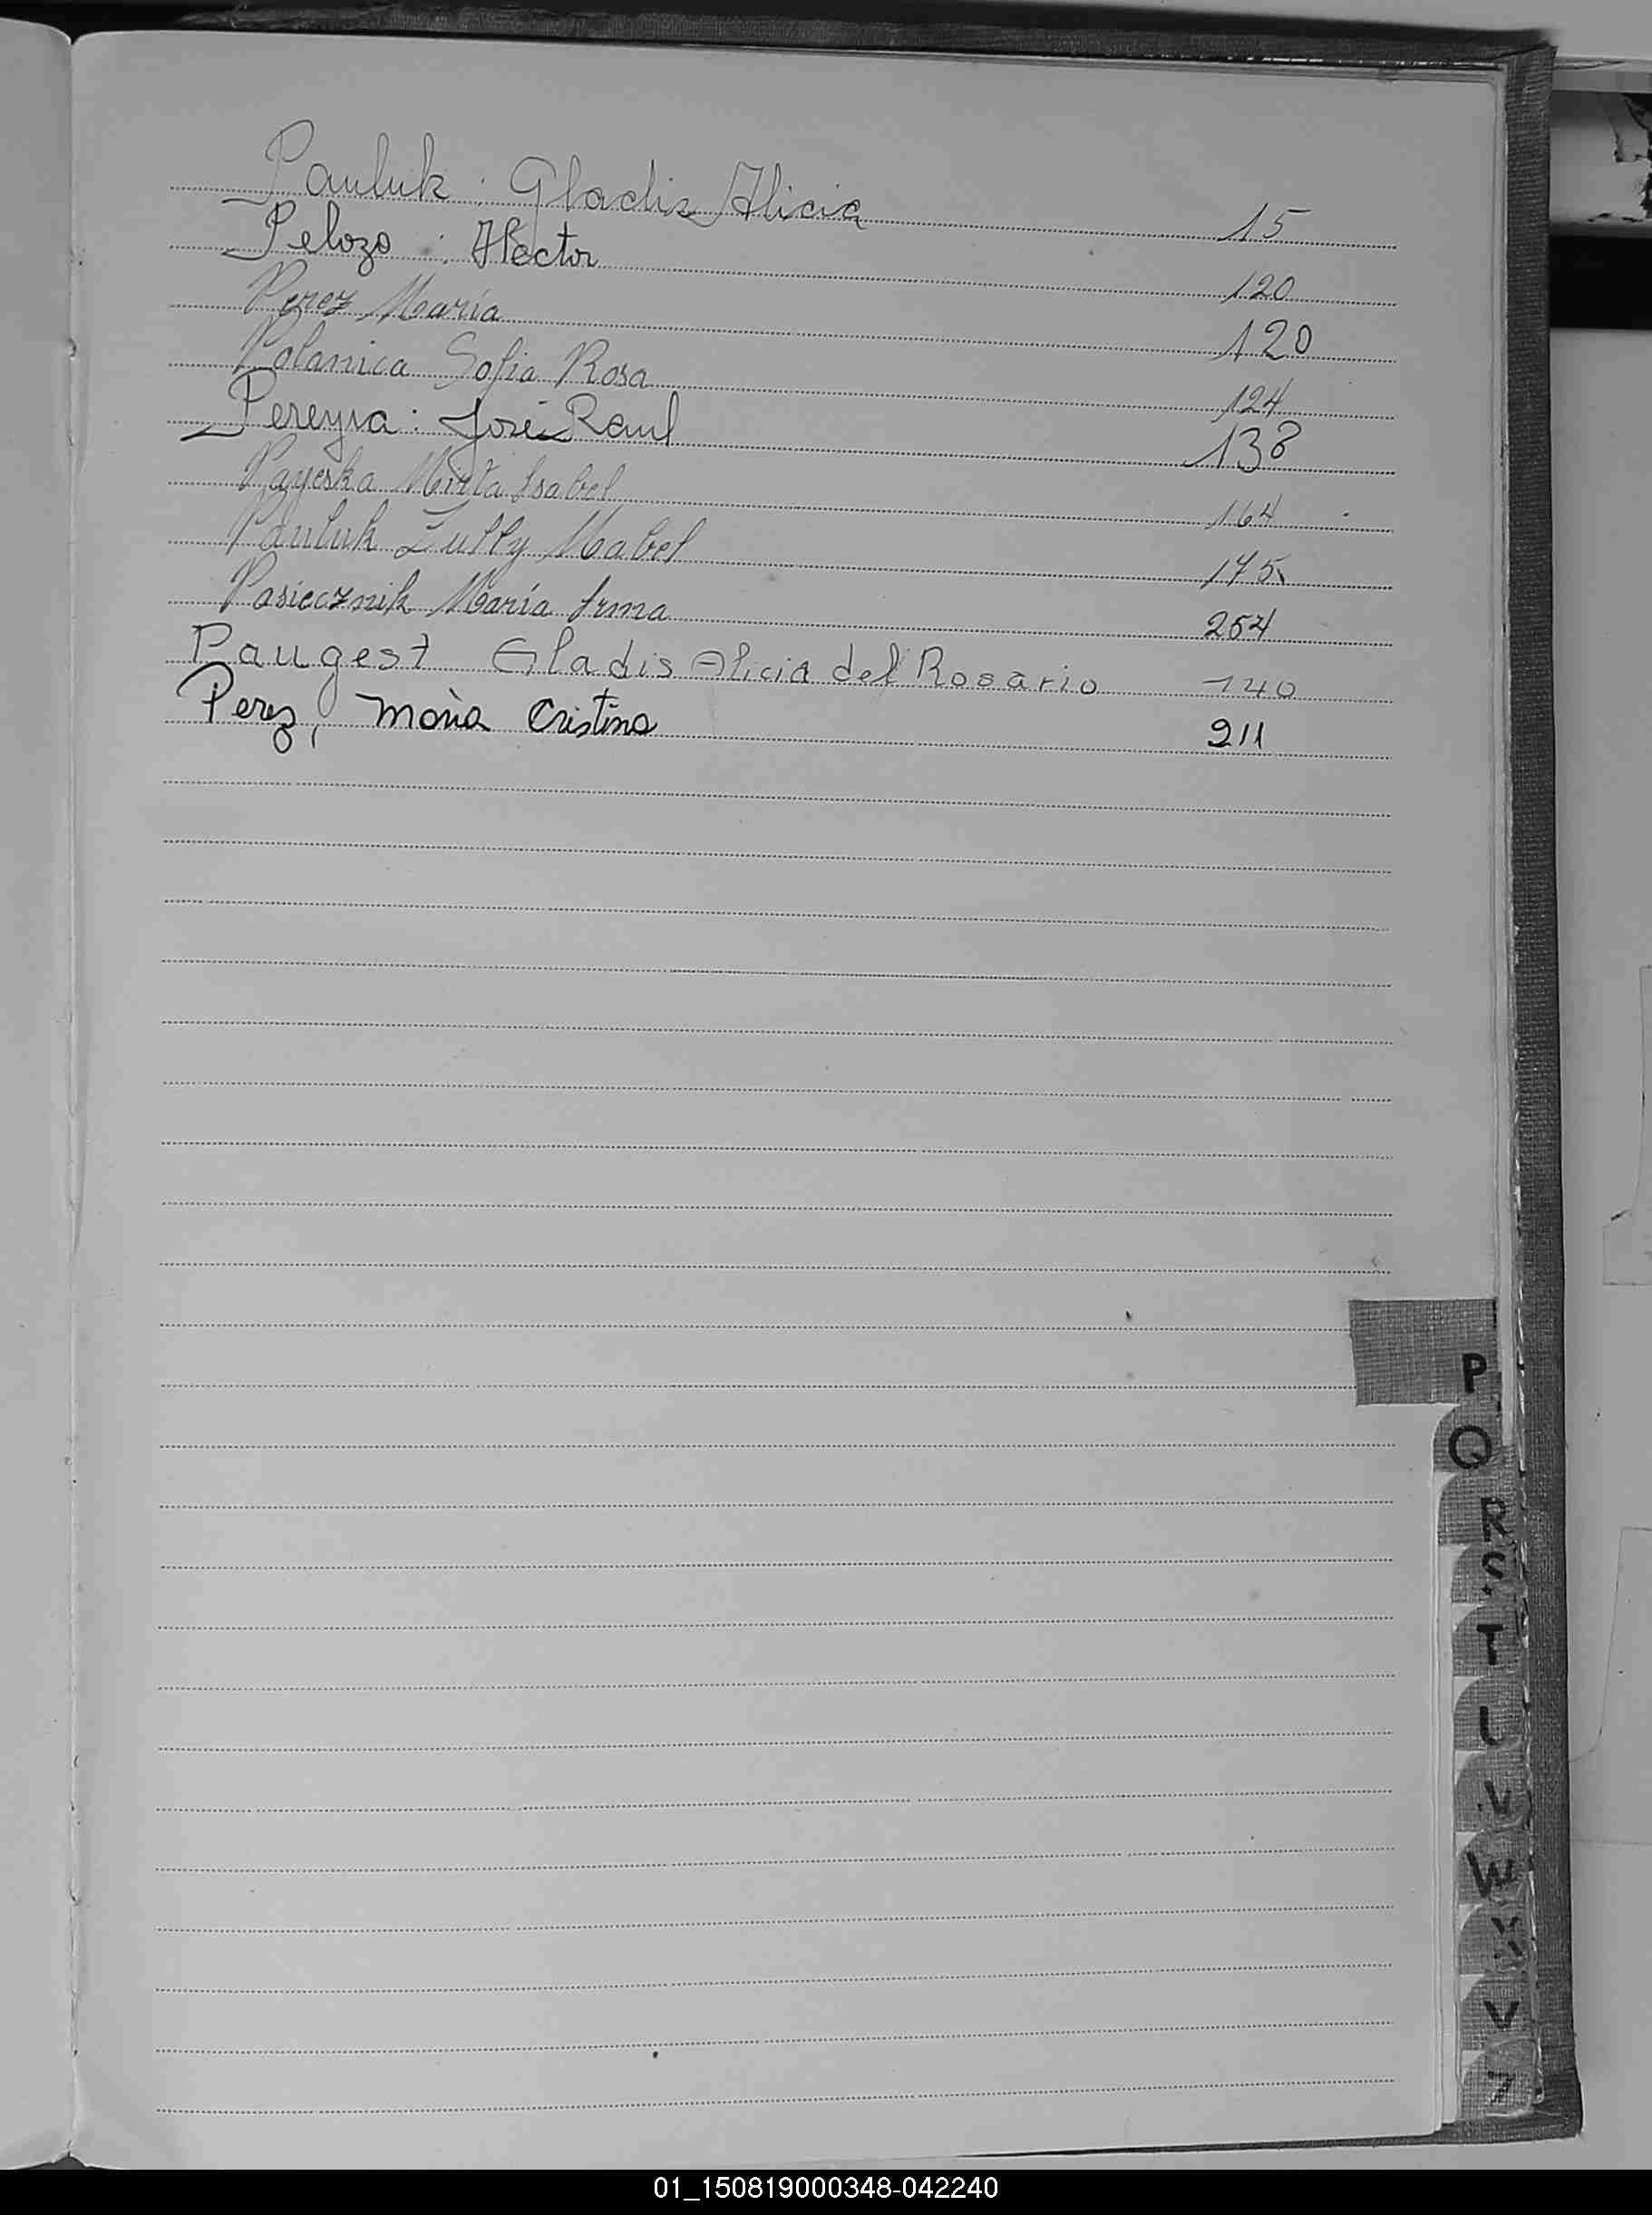 Pauluk : Gladis Alicia 15
Pelozo : Hector 120
Perez María 120
Polanica Sofia Rosa 124
Pereyra : José Raul 138
Payeska Mirta Isabel 164
Pauluk Zully Mabel 175
Pasiecznik María Irma 254
Paugest Gladis Alicia del Rosario 140
Perez, María Cristina 211
P
Q
R
S
T
V
W
V
01_150819000348-042240